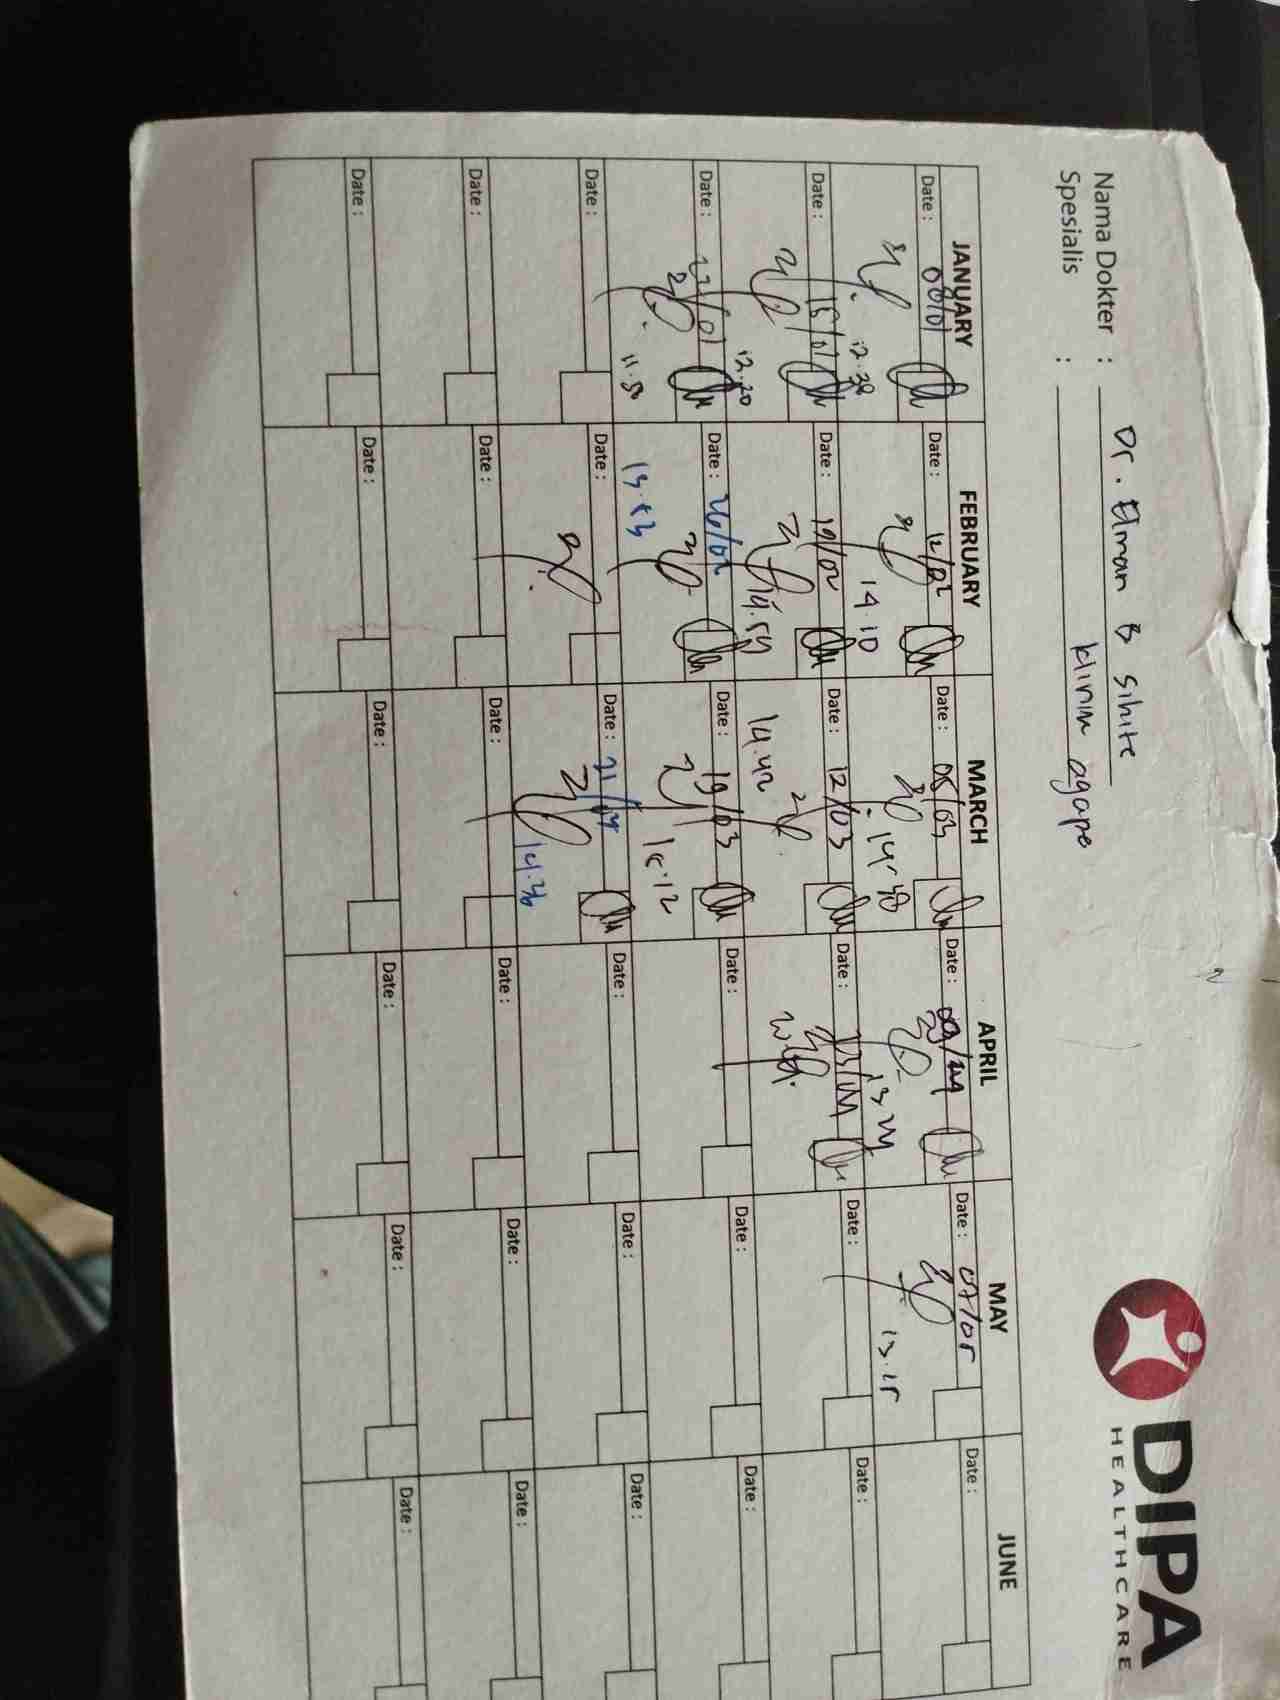 DIPA
HEALTHCARE
Nama Dokter : Dr. Elman B Sihite
Spesialis : klinik agape
JANUARY FEBRUARY MARCH APRIL MAY JUNE
Date : 08/01 Date : 12/02 Date : 05/03 Date : 09/04 Date : 07/05 Date :
12.30 14.10 14.30 13.24 13.15
Date : 15/01 Date : 19/02 Date : 12/03 Date : 23/04 Date : Date :
12.20 14.50 14.42
Date : 22/01 Date : 26/02 Date : 19/03 Date : Date : Date :
11.50 13.53 15.12
Date : Date : Date : Date : Date : Date :
14.36
Date : Date : Date : Date : Date : Date :
Date : Date : Date : Date : Date : Date :